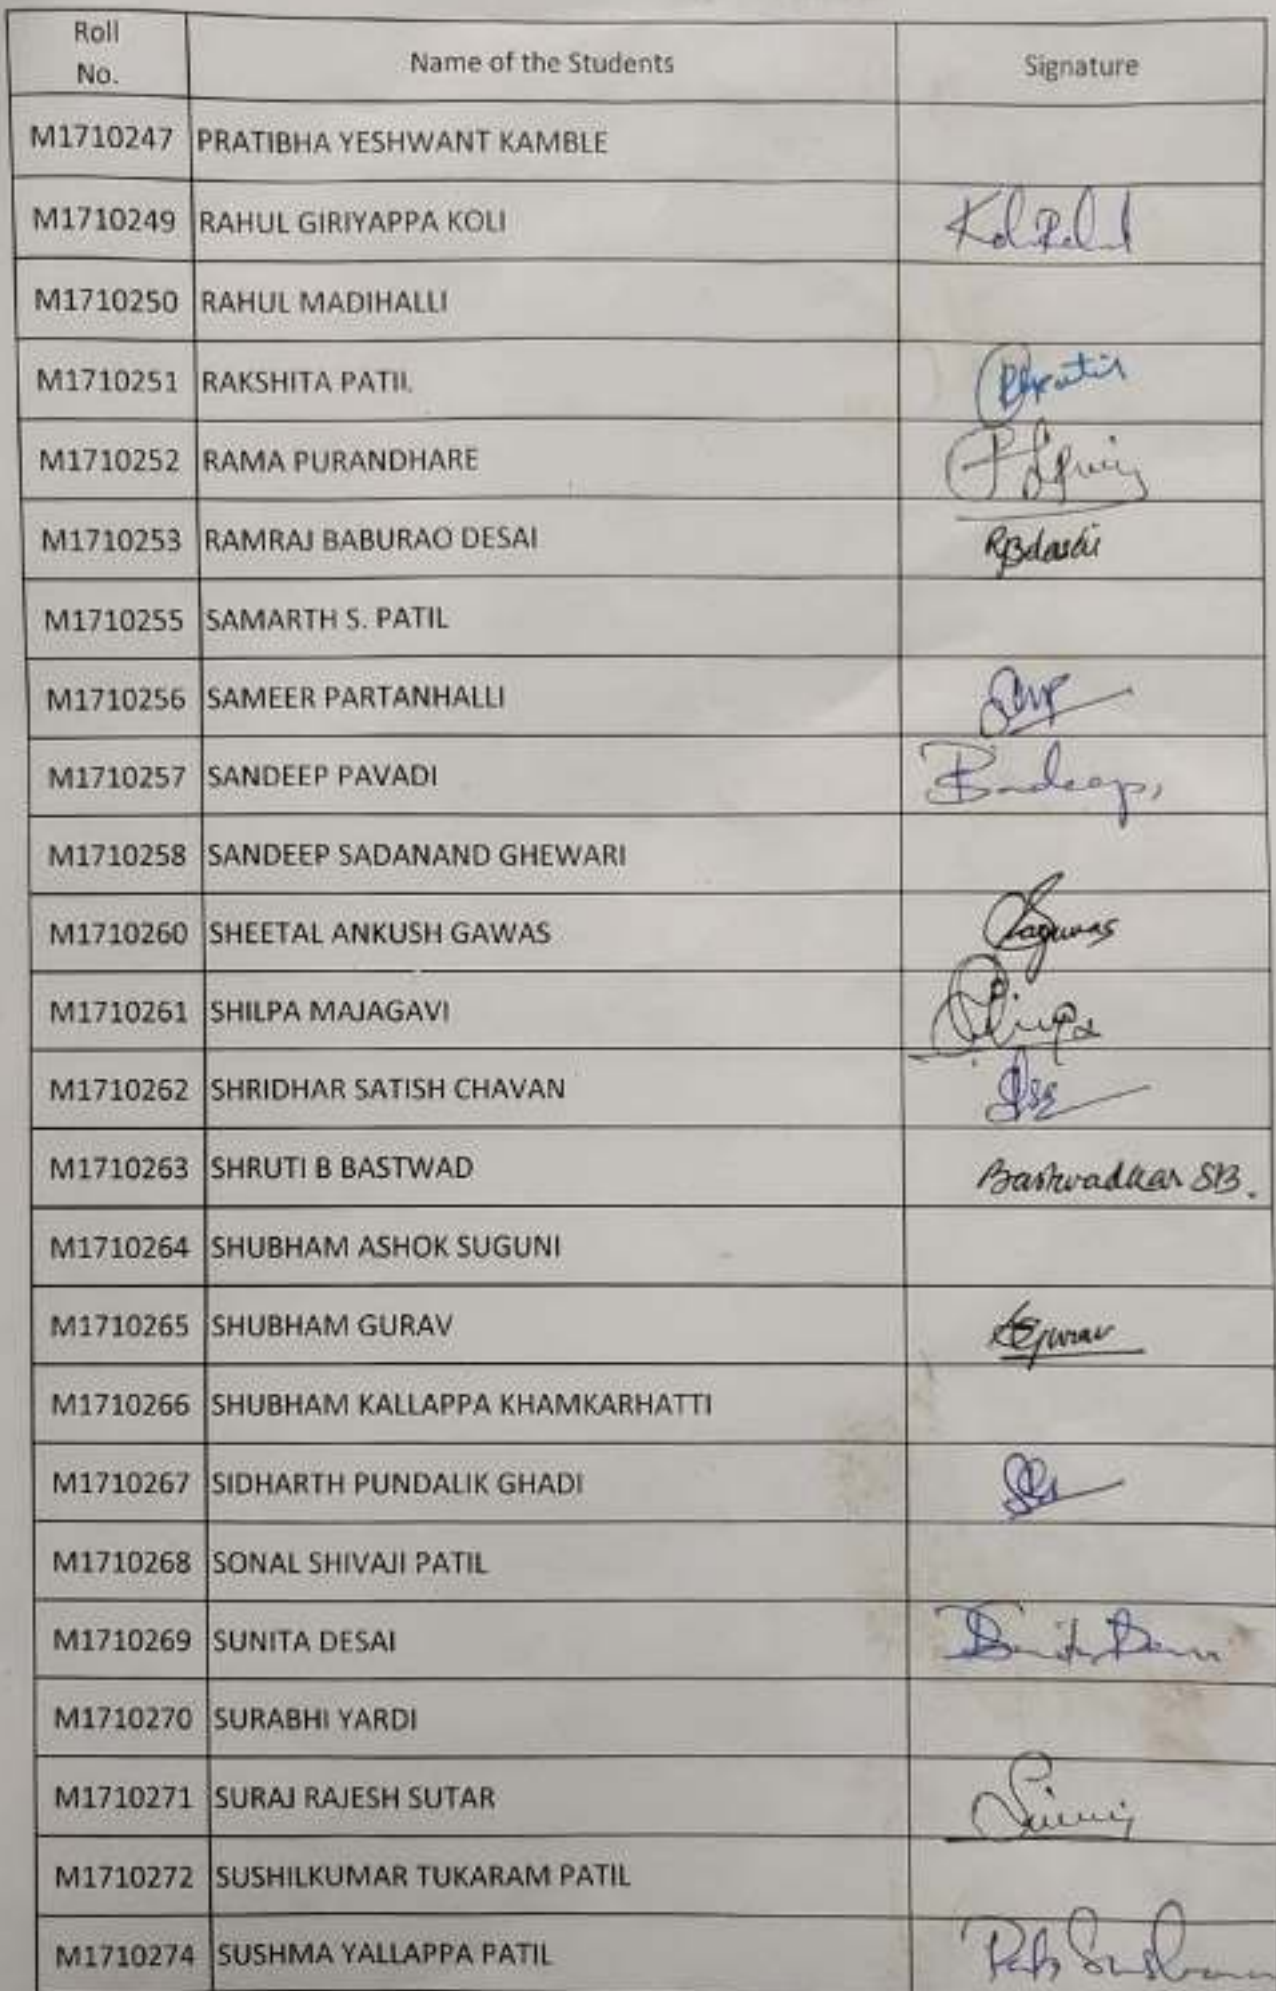 Roll
No.
Name of the Students
Signature
M1710247 PRATIBHA YESHWANT KAMBLE
M1710249 RAHUL GIRIYAPPA KOLI
M1710250 RAHUL MADIHALLI
M1710251 RAKSHITA PATIL
M1710252 RAMA PURANDHARE
M1710253 RAMRAJ BABURAO DESAI
M1710255 SAMARTH S. PATIL
M1710256 SAMEER PARTANHALLI
M1710257 SANDEEP PAVADI Sandeep
M1710258 SANDEEP SADANAND GHEWARI
M1710260 SHEETAL ANKUSH GAWAS
M1710261 SHILPA MAJAGAVI
M1710262 SHRIDHAR SATISH CHAVAN
M1710263 SHRUTI B BASTWAD Bastwadkar SB.
M1710264 SHUBHAM ASHOK SUGUNI
M1710265 SHUBHAM GURAV
M1710266 SHUBHAM KALLAPPA KHAMKARHATTI
M1710267 SIDHARTH PUNDALIK GHADI
M1710268 SONAL SHIVAJI PATIL
M1710269 SUNITA DESAI
M1710270 SURABHI YARDI
M1710271 SURAJ RAJESH SUTAR
M1710272 SUSHILKUMAR TUKARAM PATIL
M1710274 SUSHMA YALLAPPA PATIL